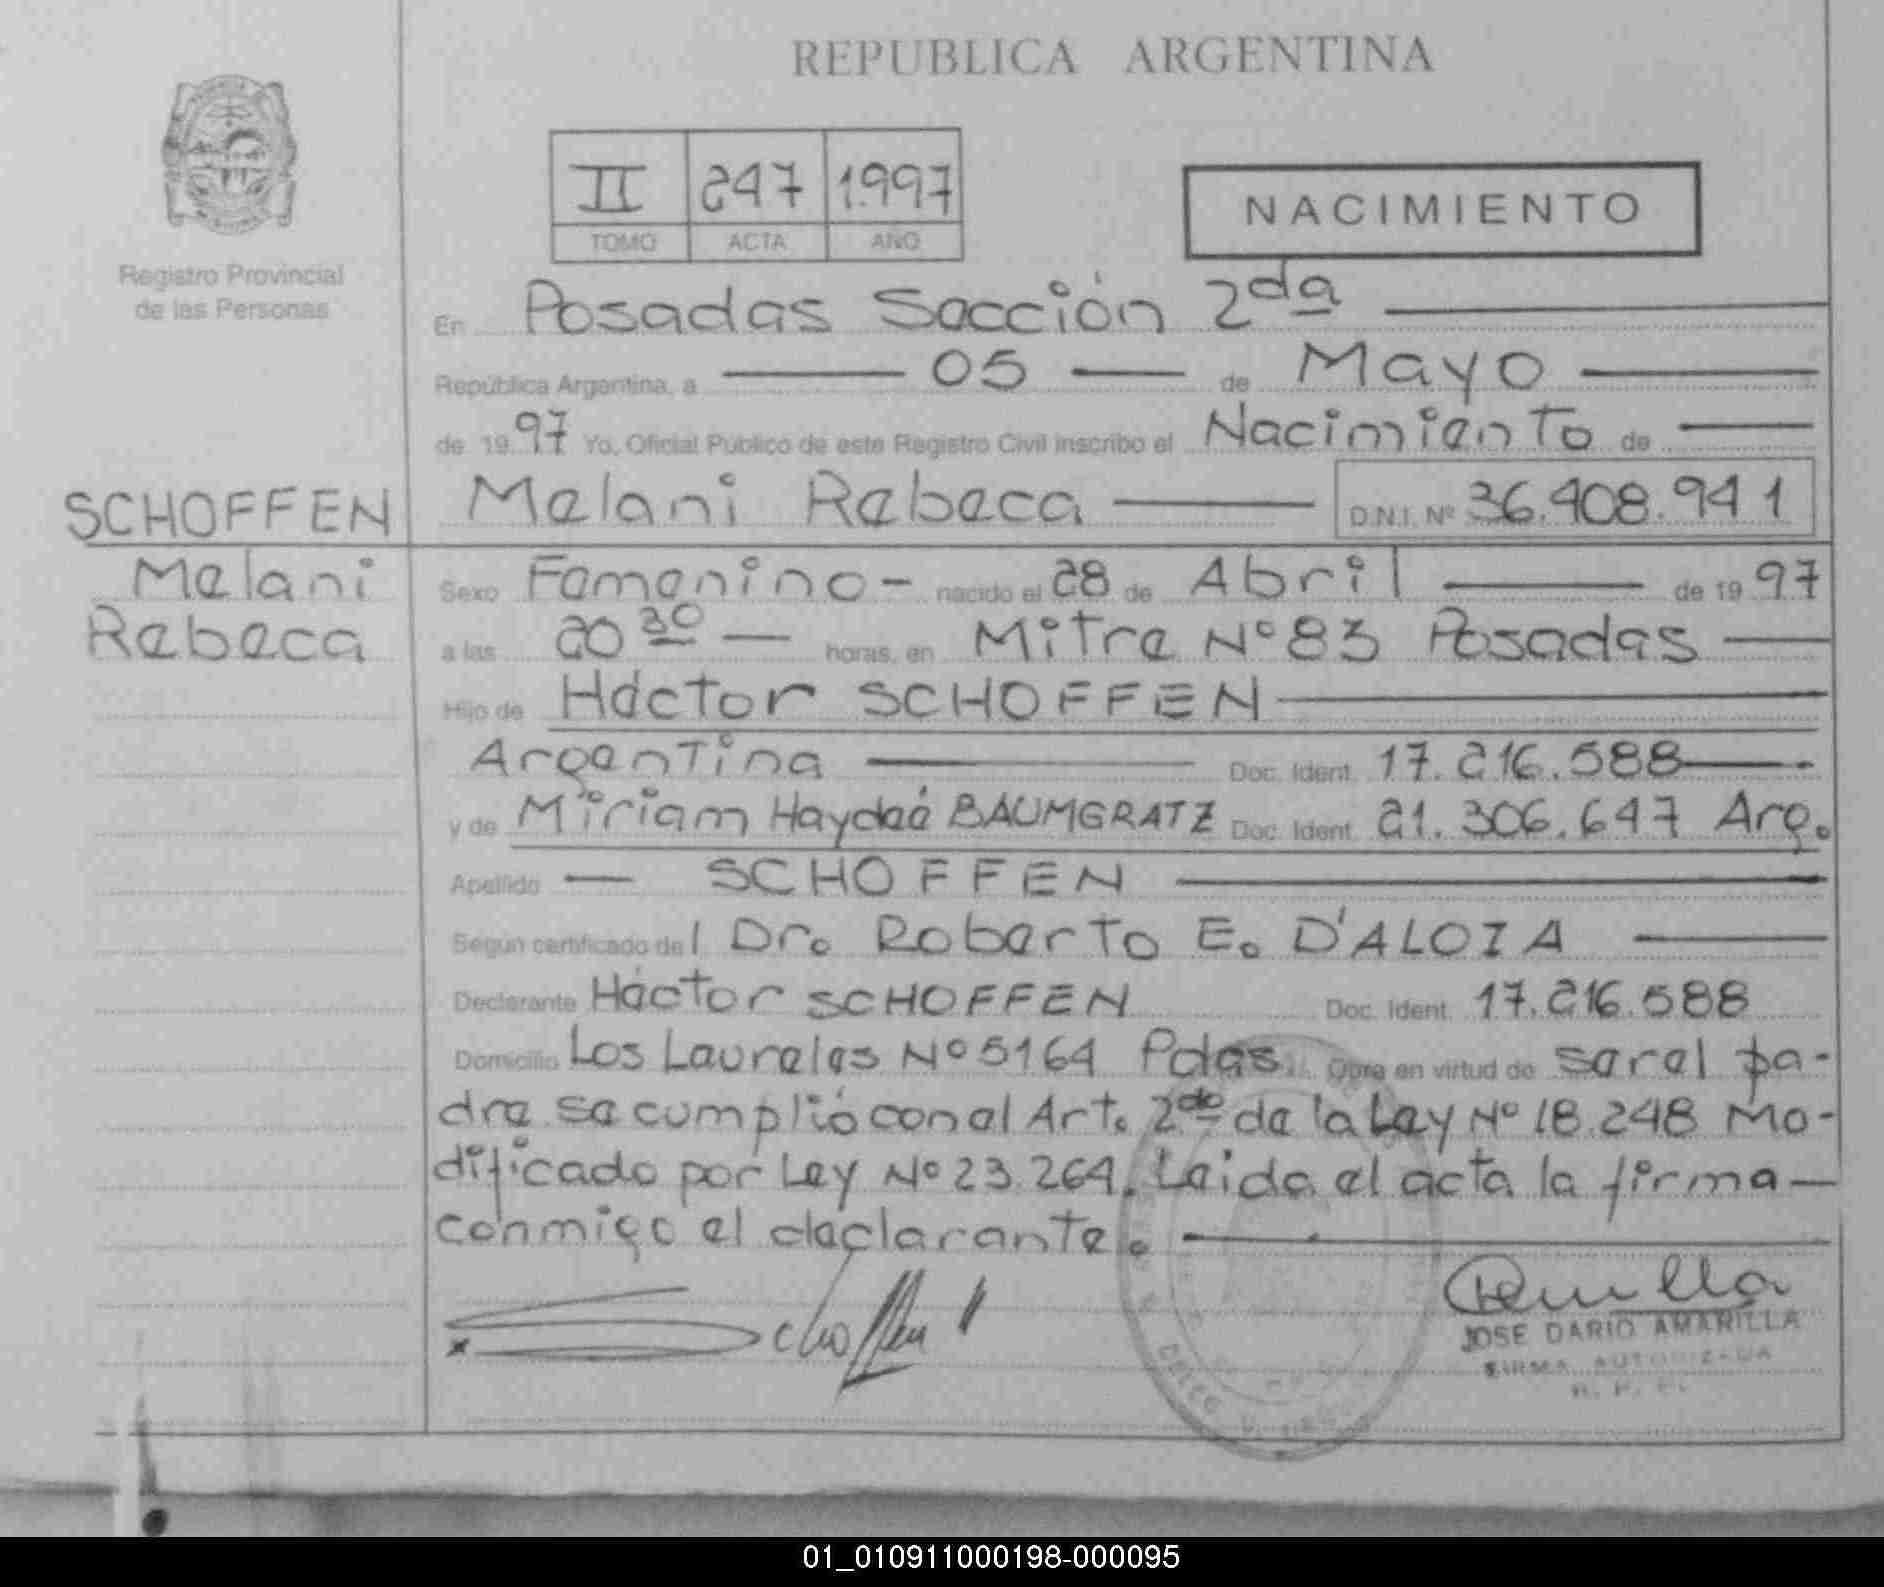 REPUBLICA ARGENTINA
II 247 1.997
TOMO ACTA AÑO
NACIMIENTO
Registro Provincial
de las Personas
En Posadas Sección 2da
República Argentina, a 05 de Mayo
de 1997 Yo, Oficial Público de este Registro Civil inscribo el Nacimiento de
SCHOFFEN
Melani Rebeca
Melani Rebeca D.N.I. Nº 36.408.941
Sexo Femenino - nacido el 28 de Abril de 1997
a las 20 30 horas, en Mitre Nº 83 Posadas
Hijo de Héctor SCHOFFEN
Argentina Doc. Ident. 17.216.588
y de Miriam Haydeé BAUMGRATZ Doc. Ident. 21.306.647 Arg.
Apellido SCHOFFEN
Según certificado del Dr. Roberto E. D'ALOIA
Declarante Héctor SCHOFFEN Doc. Ident. 17.216.588
Domicilio Los Laureles Nº 5164 Pdas. Obra en virtud de ser el pa-
dre se cumplió con el Art. 2do de la Ley Nº 18.248 Mo-
dificado por Ley Nº 23.264. Leida el acta la firma
conmigo el declarante.
Schoffen
JOSE DARIO AMARILLA
FIRMA AUTORIZADA
R. P. P.
01_010911000198-000095